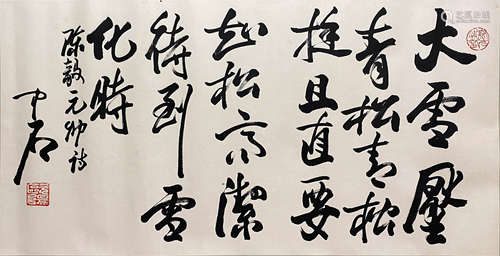 大雪壓
青松青松
挺且直要
知松高潔
待到雪
化時
陈毅元帅诗
中石